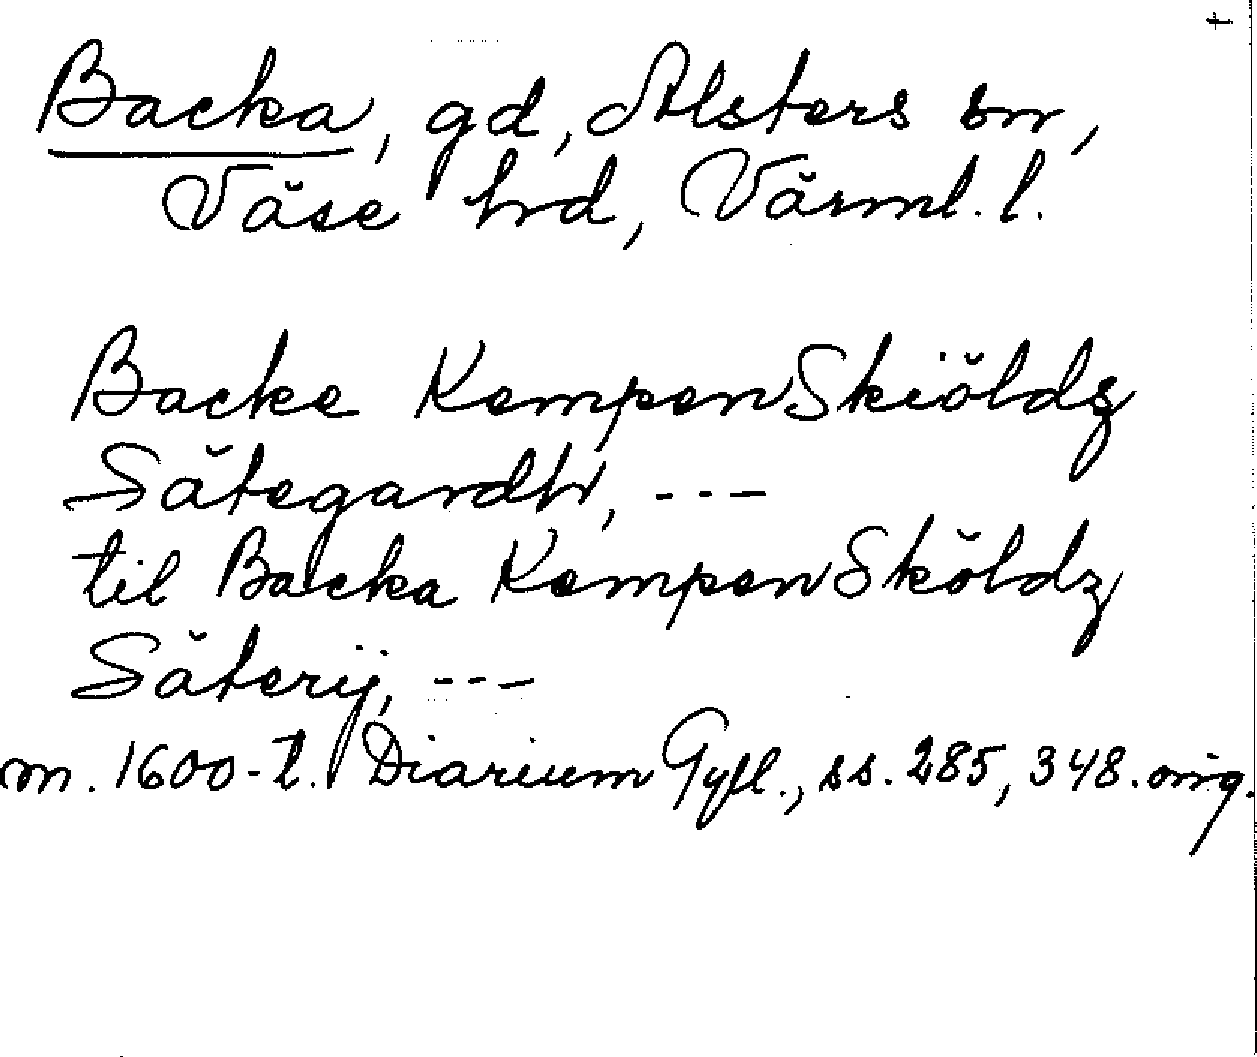 Backa, gd, Alsters sn,
Väse hrd, Värml. l.
Backe KempenSkiöldz
Sätegardh, ---
til Backa KempenSköldz
Säterij, ---
m. 1600-t. Diarium Gyll., ss. 285, 348. orig.